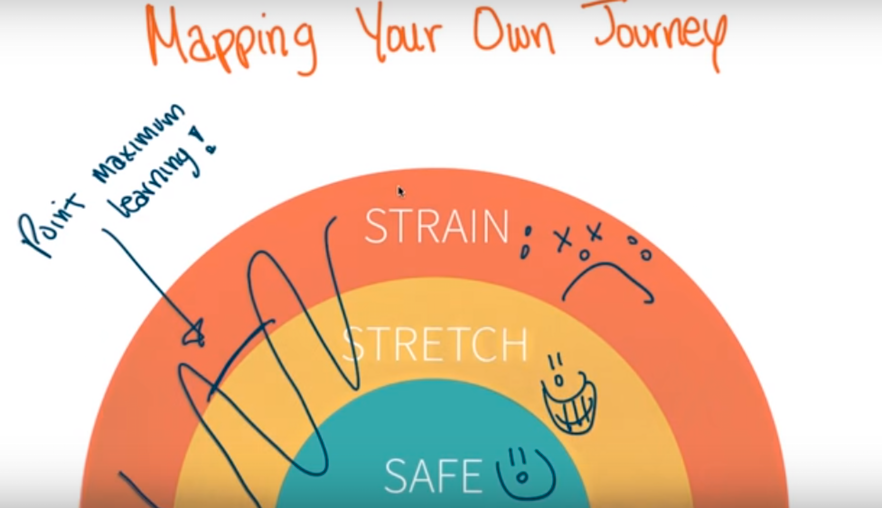 Mapping Your Own Journey
Point maximum
learning!
STRAIN
STRETCH
SAFE